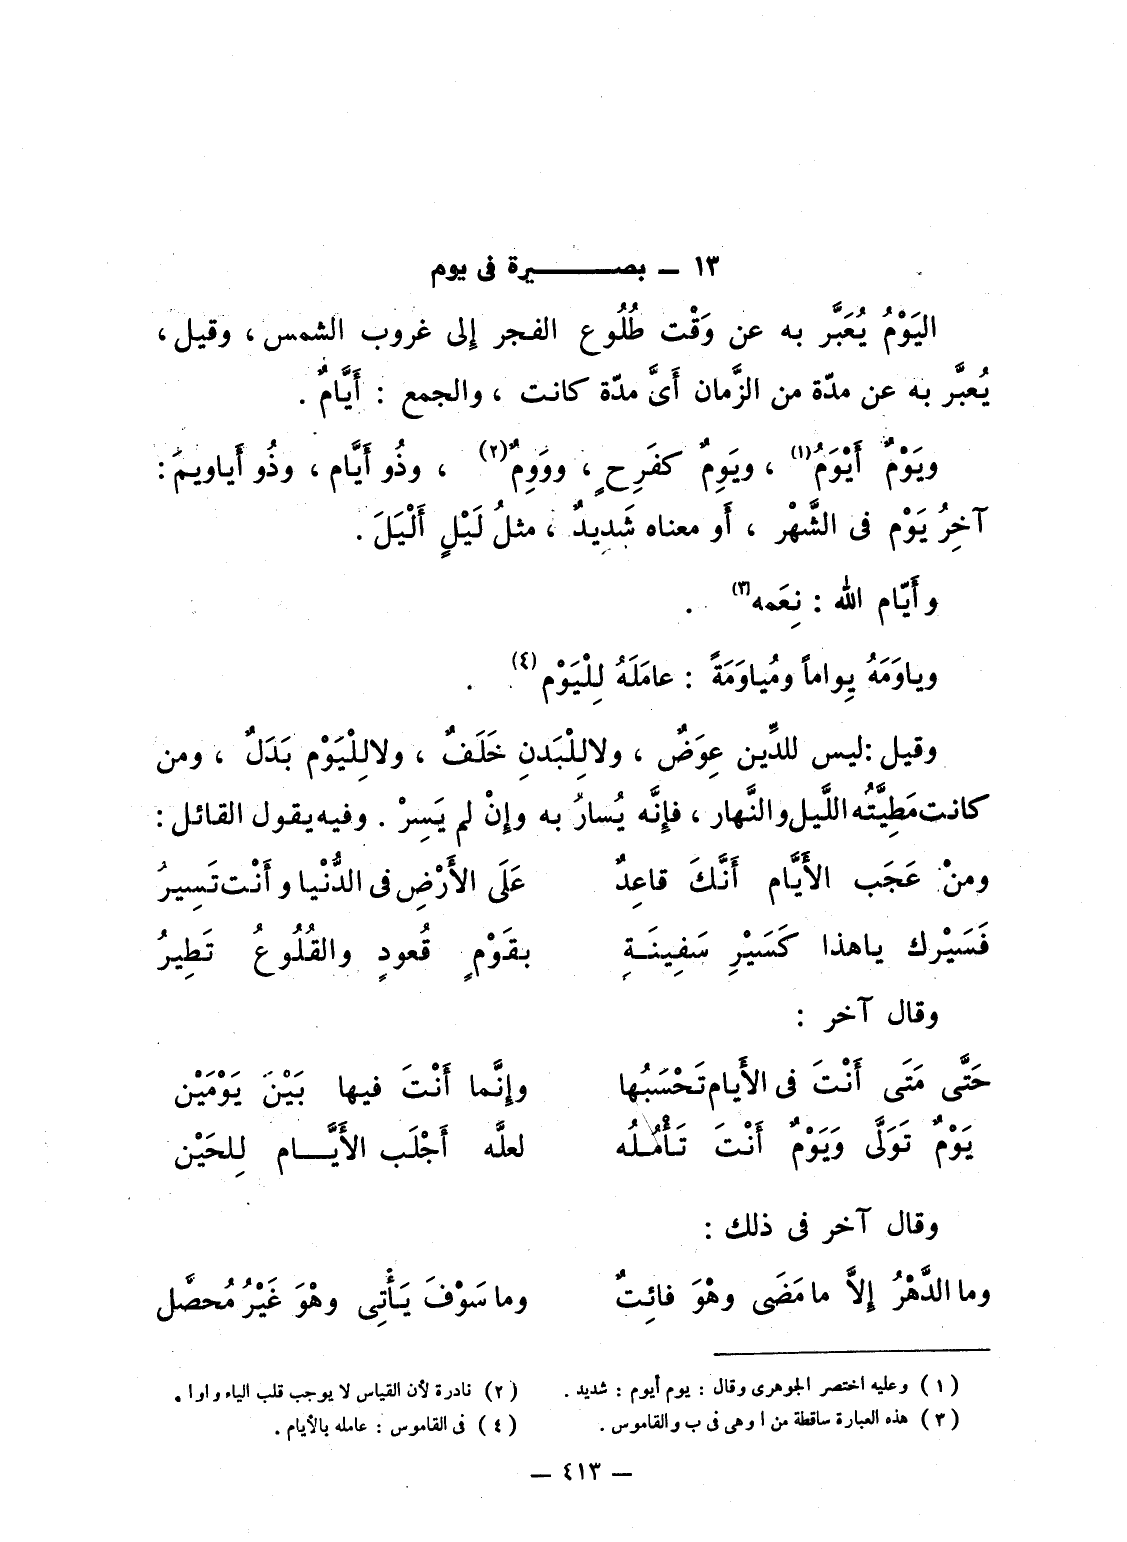 ١٣ ـ بصـــــــيرة فى يوم
اليَوْمُ يُعَبَّر به عن وَقْت طُلُوع الفجر إلى غروب الشمس ، وقيل ،
يُعبَّر به عن مدّة من الزَّمان أَىَّ مدّة كانت ، والجمع : أَيَّامٌ .
ويَوْمٌ أَيْوَمُ(١) ، ويَوِمٌ كفَرِحٍ ، ووَوِمٌ(٢) ، وذُو أَيَّام ، وذُو أَياويمَ :
آخِرُ يَوْم فى الشَّهْر ، أَو معناه شَدِيدٌ ، مثلُ لَيْلٍ أَلْيَلَ .
وأَيّام الله : نِعَمه(٣) .
وياوَمَهُ يِواماً ومُياوَمَةً : عامَلَهُ لِلْيَوْم(٤) .
وقيل : ليس للدِّين عِوَضٌ ، ولا لِلْبَدنِ خَلَفٌ ، ولا لِلْيَوْم بَدَلٌ ، ومن
كانت مَطِيَّتُه اللَّيل والنَّهار ، فإنَّه يُسارُ به وإنْ لم يَسِرْ . وفيه يقول القائل :
ومنْ عَجَب الأَيَّام أَنَّكَ قاعِدٌ عَلَى الأَرْضِ فى الدُّنْيا وأَنْت تَسِيرُ
فَسَيْرك ياهذا كَسَيْرِ سَفِينَـةٍ بقَوْمٍ قُعودٍ والقُلُوعُ تَطِيرُ
وقال آخر :
حَتَّى مَتَى أَنْتَ فى الأَيام تَحْسَبُها وإنَّما أَنْتَ فيها بَيْنَ يَوْمَيْن
يَوْمٌ تَوَلَّى وَيَوْمٌ أَنْتَ تَأْمُـلُه لعلَّه أَجْلَب الأَيَّـــام لِلحَيْن
وقال آخر فى ذلك :
وما الدَّهْرُ إلاَّ ما مَضَى وهْوَ فائِتٌ وما سَوْفَ يَأْتِى وهْوَ غَيْرُ مُحصَّل
(١) وعليه اختصر الجوهرى وقال : يوم أيوم : شديد . (٢) نادرة لأن القياس لا يوجب قلب الياء واوا .
(٣) هذه العبارة ساقطة من ا وهى فى ب والقاموس . (٤) فى القاموس : عامله بالأيام .
— ٤١٣ —